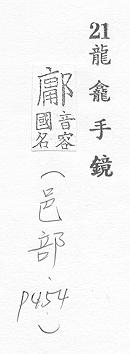 21龍龕手鏡
鄘
音容
國名
（邑部．P454）